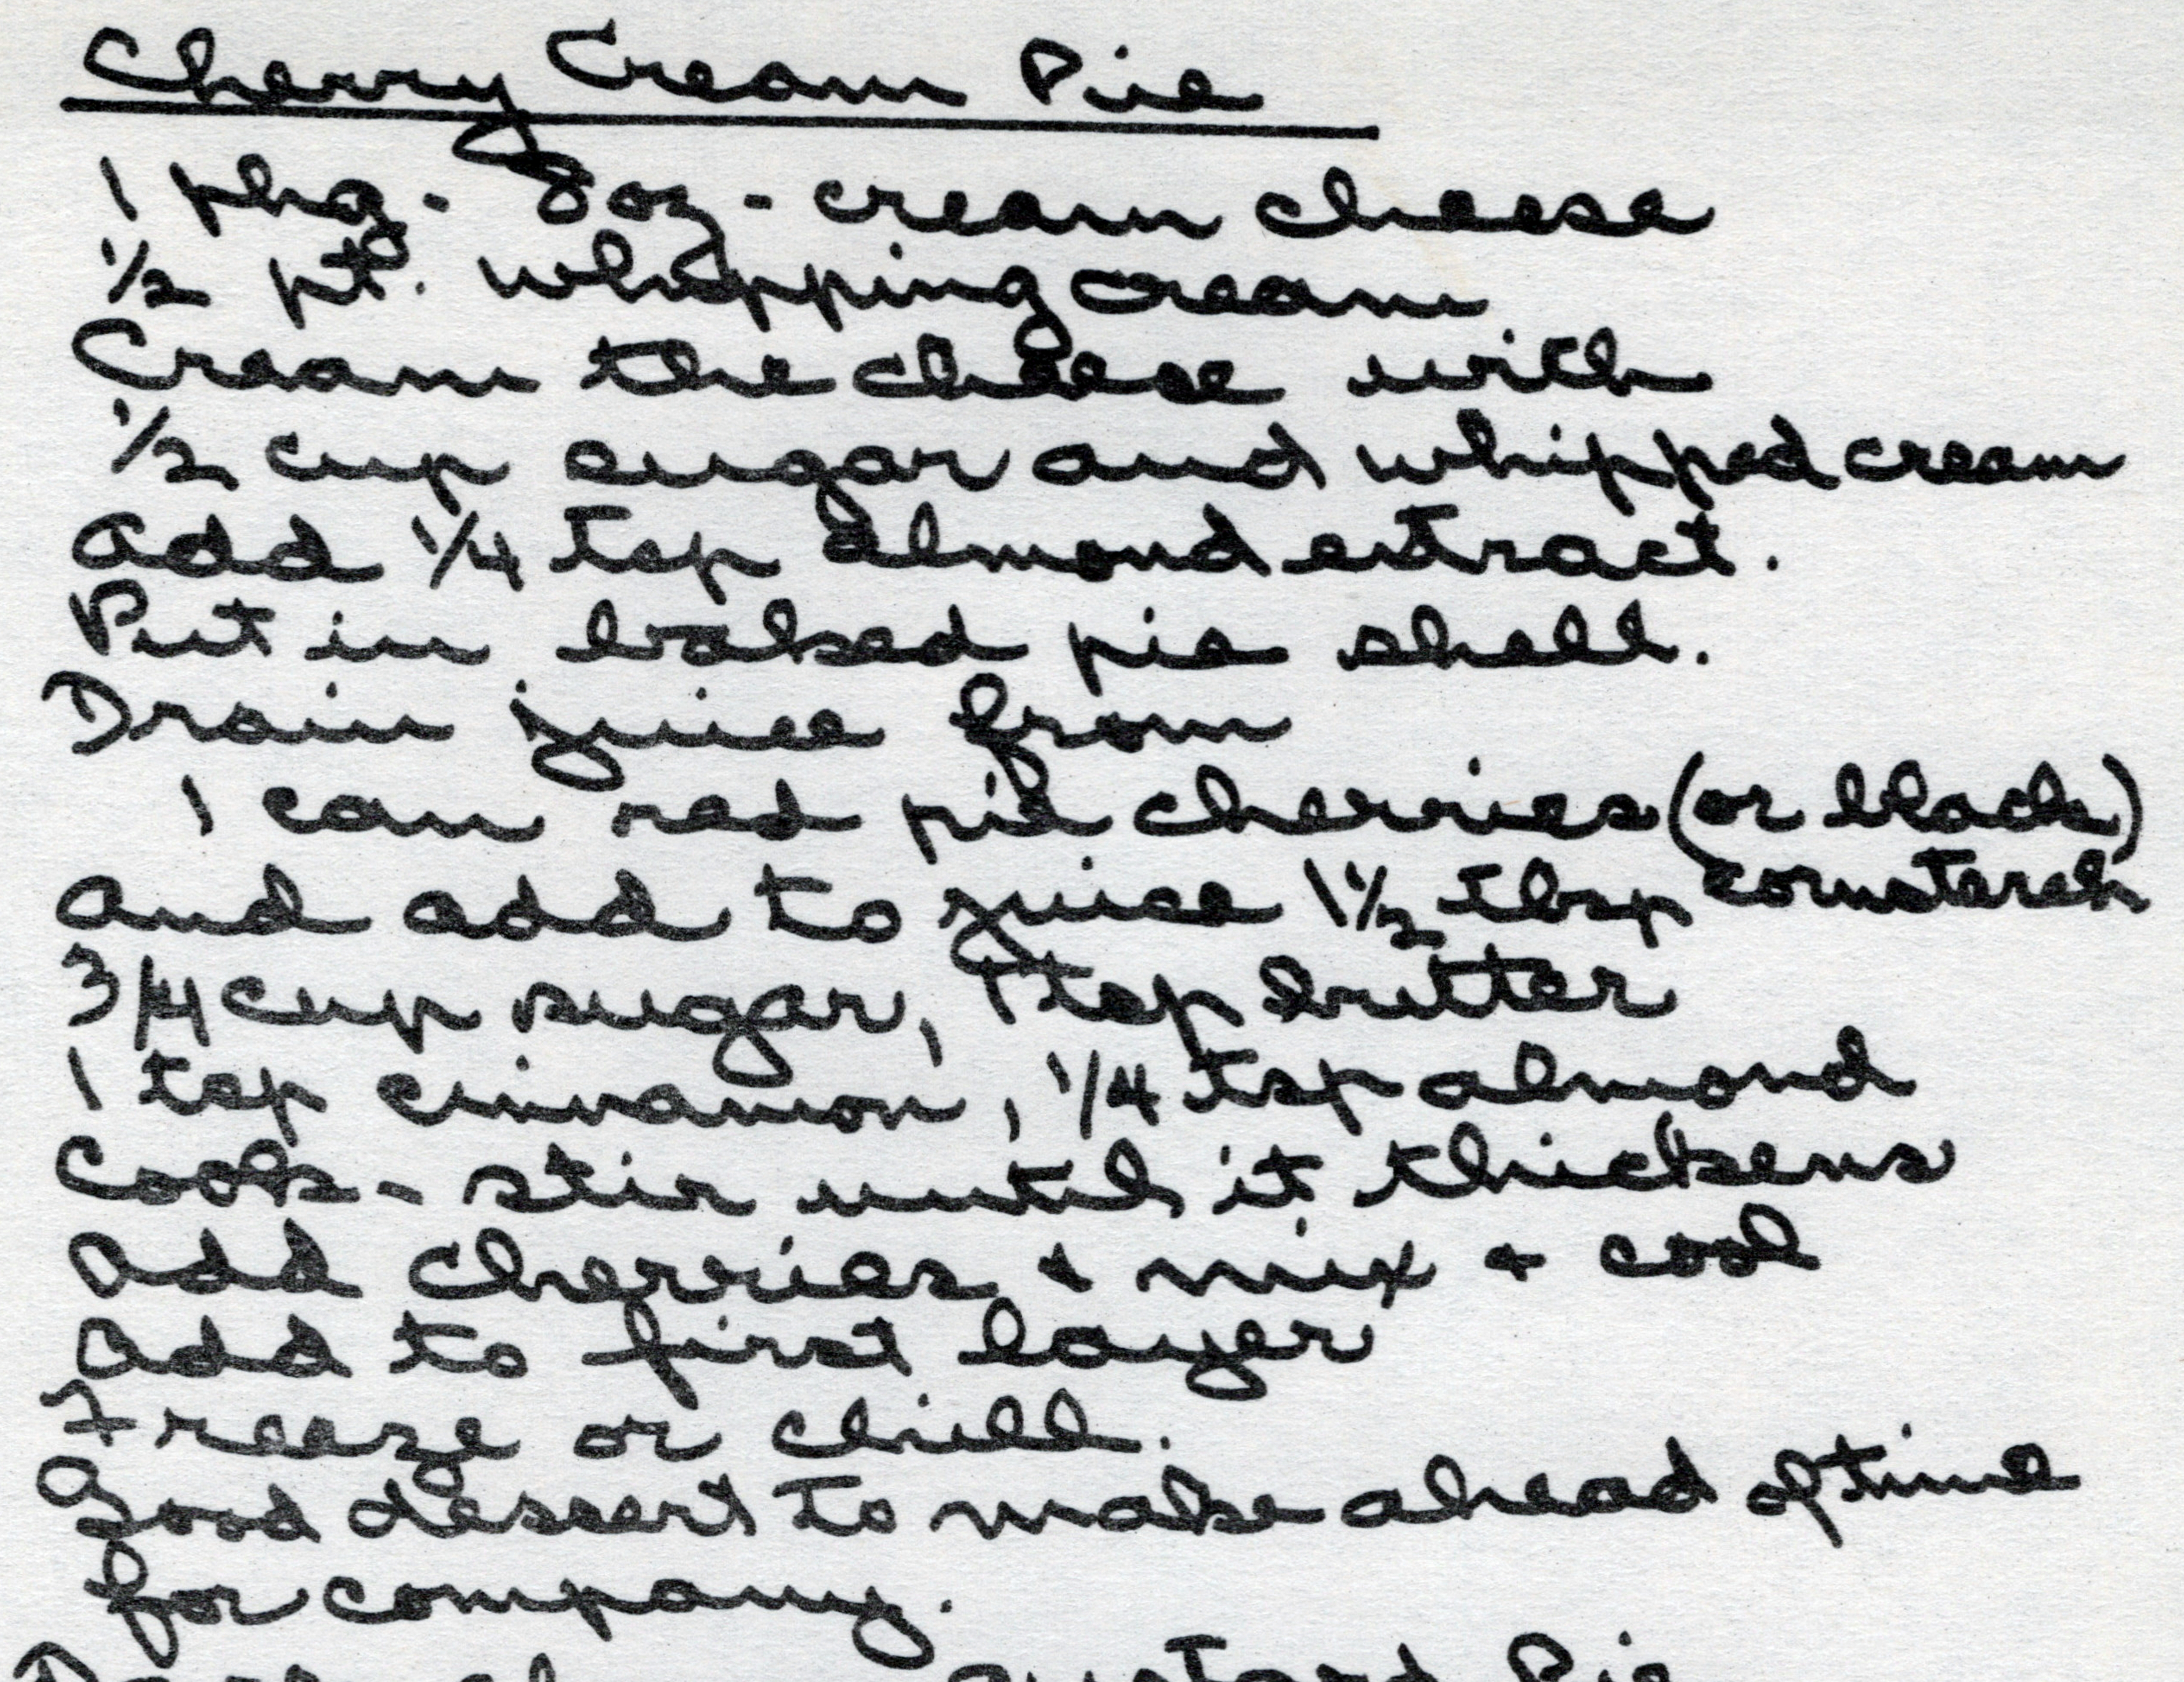 Cherry Cream Pie
1 pkg. 8oz - cream cheese
1/2 pt. whipping cream
Cream the cheese with
1/2 cup sugar and whipped cream
Add 1/4 tsp almond extract.
Put in baked pie shell.
Drain juice from
1 can red pie cherries (or black)
And add to juice 1 1/2 tbsp cornstarch
3/4 cup sugar, 1 tsp butter
1 tsp cinnamon, 1/4 tsp almond
Cook - stir until it thickens
Add cherries + mix + cool
Add to first layer
Freeze or chill.
Good dessert to make ahead of time
for company.
Custard Pie